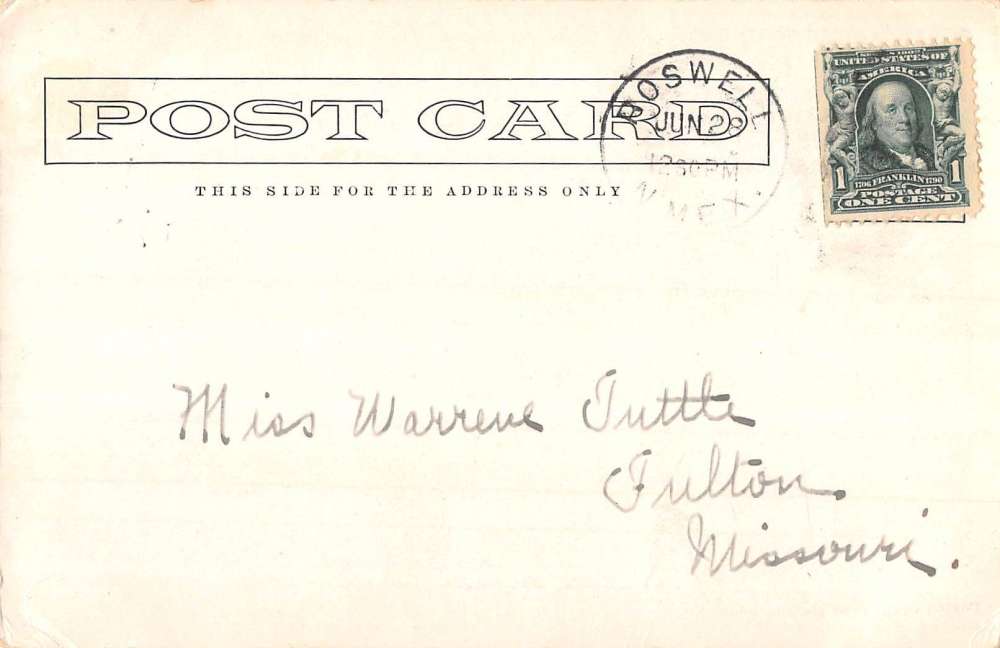 POST CARD
THIS SIDE FOR THE ADDRESS ONLY
BOSWELL
JUN 28
1230 PM
N. MEX.
UNITED STATES OF
AMERICA
1 1
1706 FRANKLIN 1790
POSTAGE
ONE CENT
Miss Warrene Tuttle
Fulton.
Missouri.